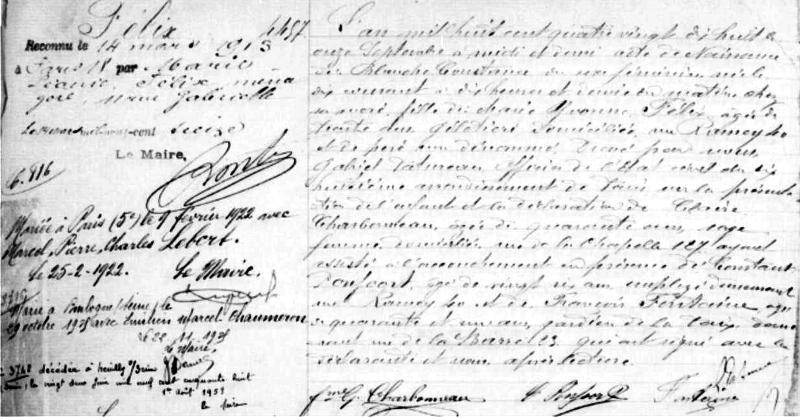 Félix
4487
Reconnu le 14 mars 1913
à Paris 18 par Marie
Félix, ména
gère,
cent
Le Maire,
6. 916
Mariée à Paris (5e) le 9 février 1922 avec
Marcel, Pierre, Charles Lebert.
le 25-2-1922. Le Maire,
Marié à Boulogne s/Seine, le
octobre 1935 avec Emilien Marcel Chaumeron
le 22 11 1935
le Maire
3742 décédée à Neuilly s/Seine
le vingt deux juin mil neuf cent cinquante huit
1er août 1958
L'an mil huit cent quatre vingt dix huit le
onze Septembre à midi et demi acte de Naissance
de Blanche Constance du sexe féminin née le
dix courant à dix heures et demie du matin chez
sa mère, fille de Marie Yvonne Félix âgée de
trente ans giletière domiciliée, rue Ramey 40
et de père non dénommé. Dressé par nous,
Gabriel officier de l'Etat civil du dix
huitième arrondissement de Paris sur la présenta
tion de l'enfant et la déclaration de
Charbonneau, âgée de quarante ans, sage
femme domiciliée rue de la Chapelle 127 ayant
assisté à l'accouchement en présence de Constant
âgé de vingt six ans employé demeurant
rue Ramey 40 et de François Fontaine âgé
de quarante et un ans, gardien de la paix, demeu
rant rue de la Barre 23 qui ont signé avec la
déclarante et nous après lecture.
fme G. Charbonneau
Fontaine